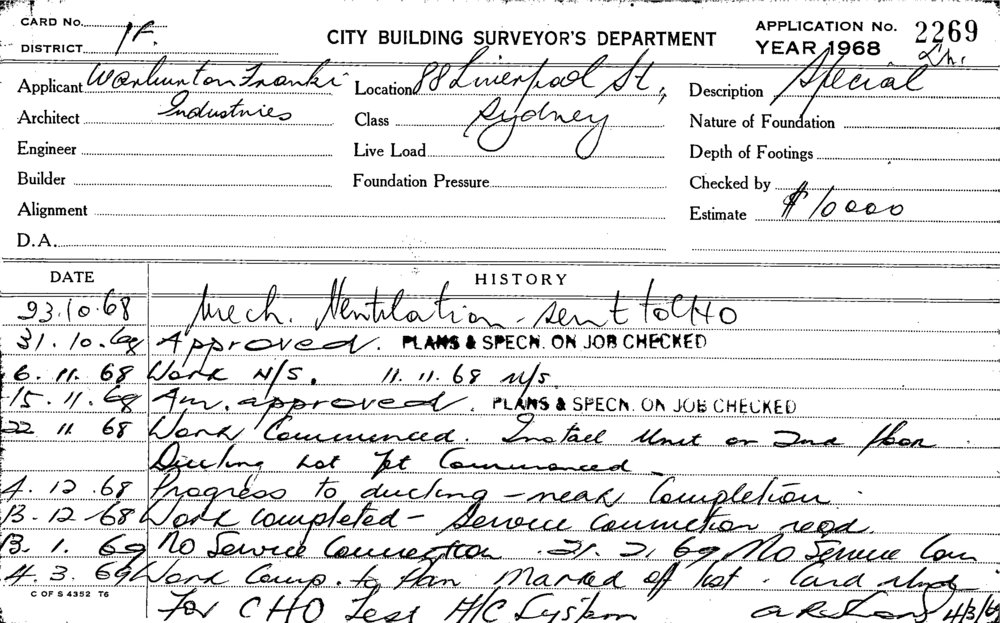 CARD No.
DISTRICT 1F.
CITY BUILDING SURVEYOR'S DEPARTMENT
APPLICATION No. 2269
YEAR 1968
Applicant Warburton Franki
Location 88 Liverpool St,
Description Special
Architect Industries
Class Sydney
Nature of Foundation
Engineer
Live Load
Depth of Footings
Builder
Foundation Pressure
Checked by
Alignment
Estimate $10000
D.A.
DATE HISTORY
23.10.68 Mech. Ventilation - sent to CHO
31.10.68 Approved. PLANS & SPECN. ON JOB CHECKED
6.11.68 Work N/S. 11.11.68 N/S
15.11.68 Am. approved. PLANS & SPECN. ON JOB CHECKED
22 11 68 Work Commenced. Install Unit on 2nd floor.
Ducting not yet Commenced
4.12.68 Progress to ducting - near Completion.
13.12.68 Work completed - Service Connection reqd.
13.1.69 No Service Connection. 21.2.69 No Service Con
4.3.69 Work Comp. to Plan Marked off list. Card
C OF S 4352 T6
For CHO Test A/C System 4/3/69